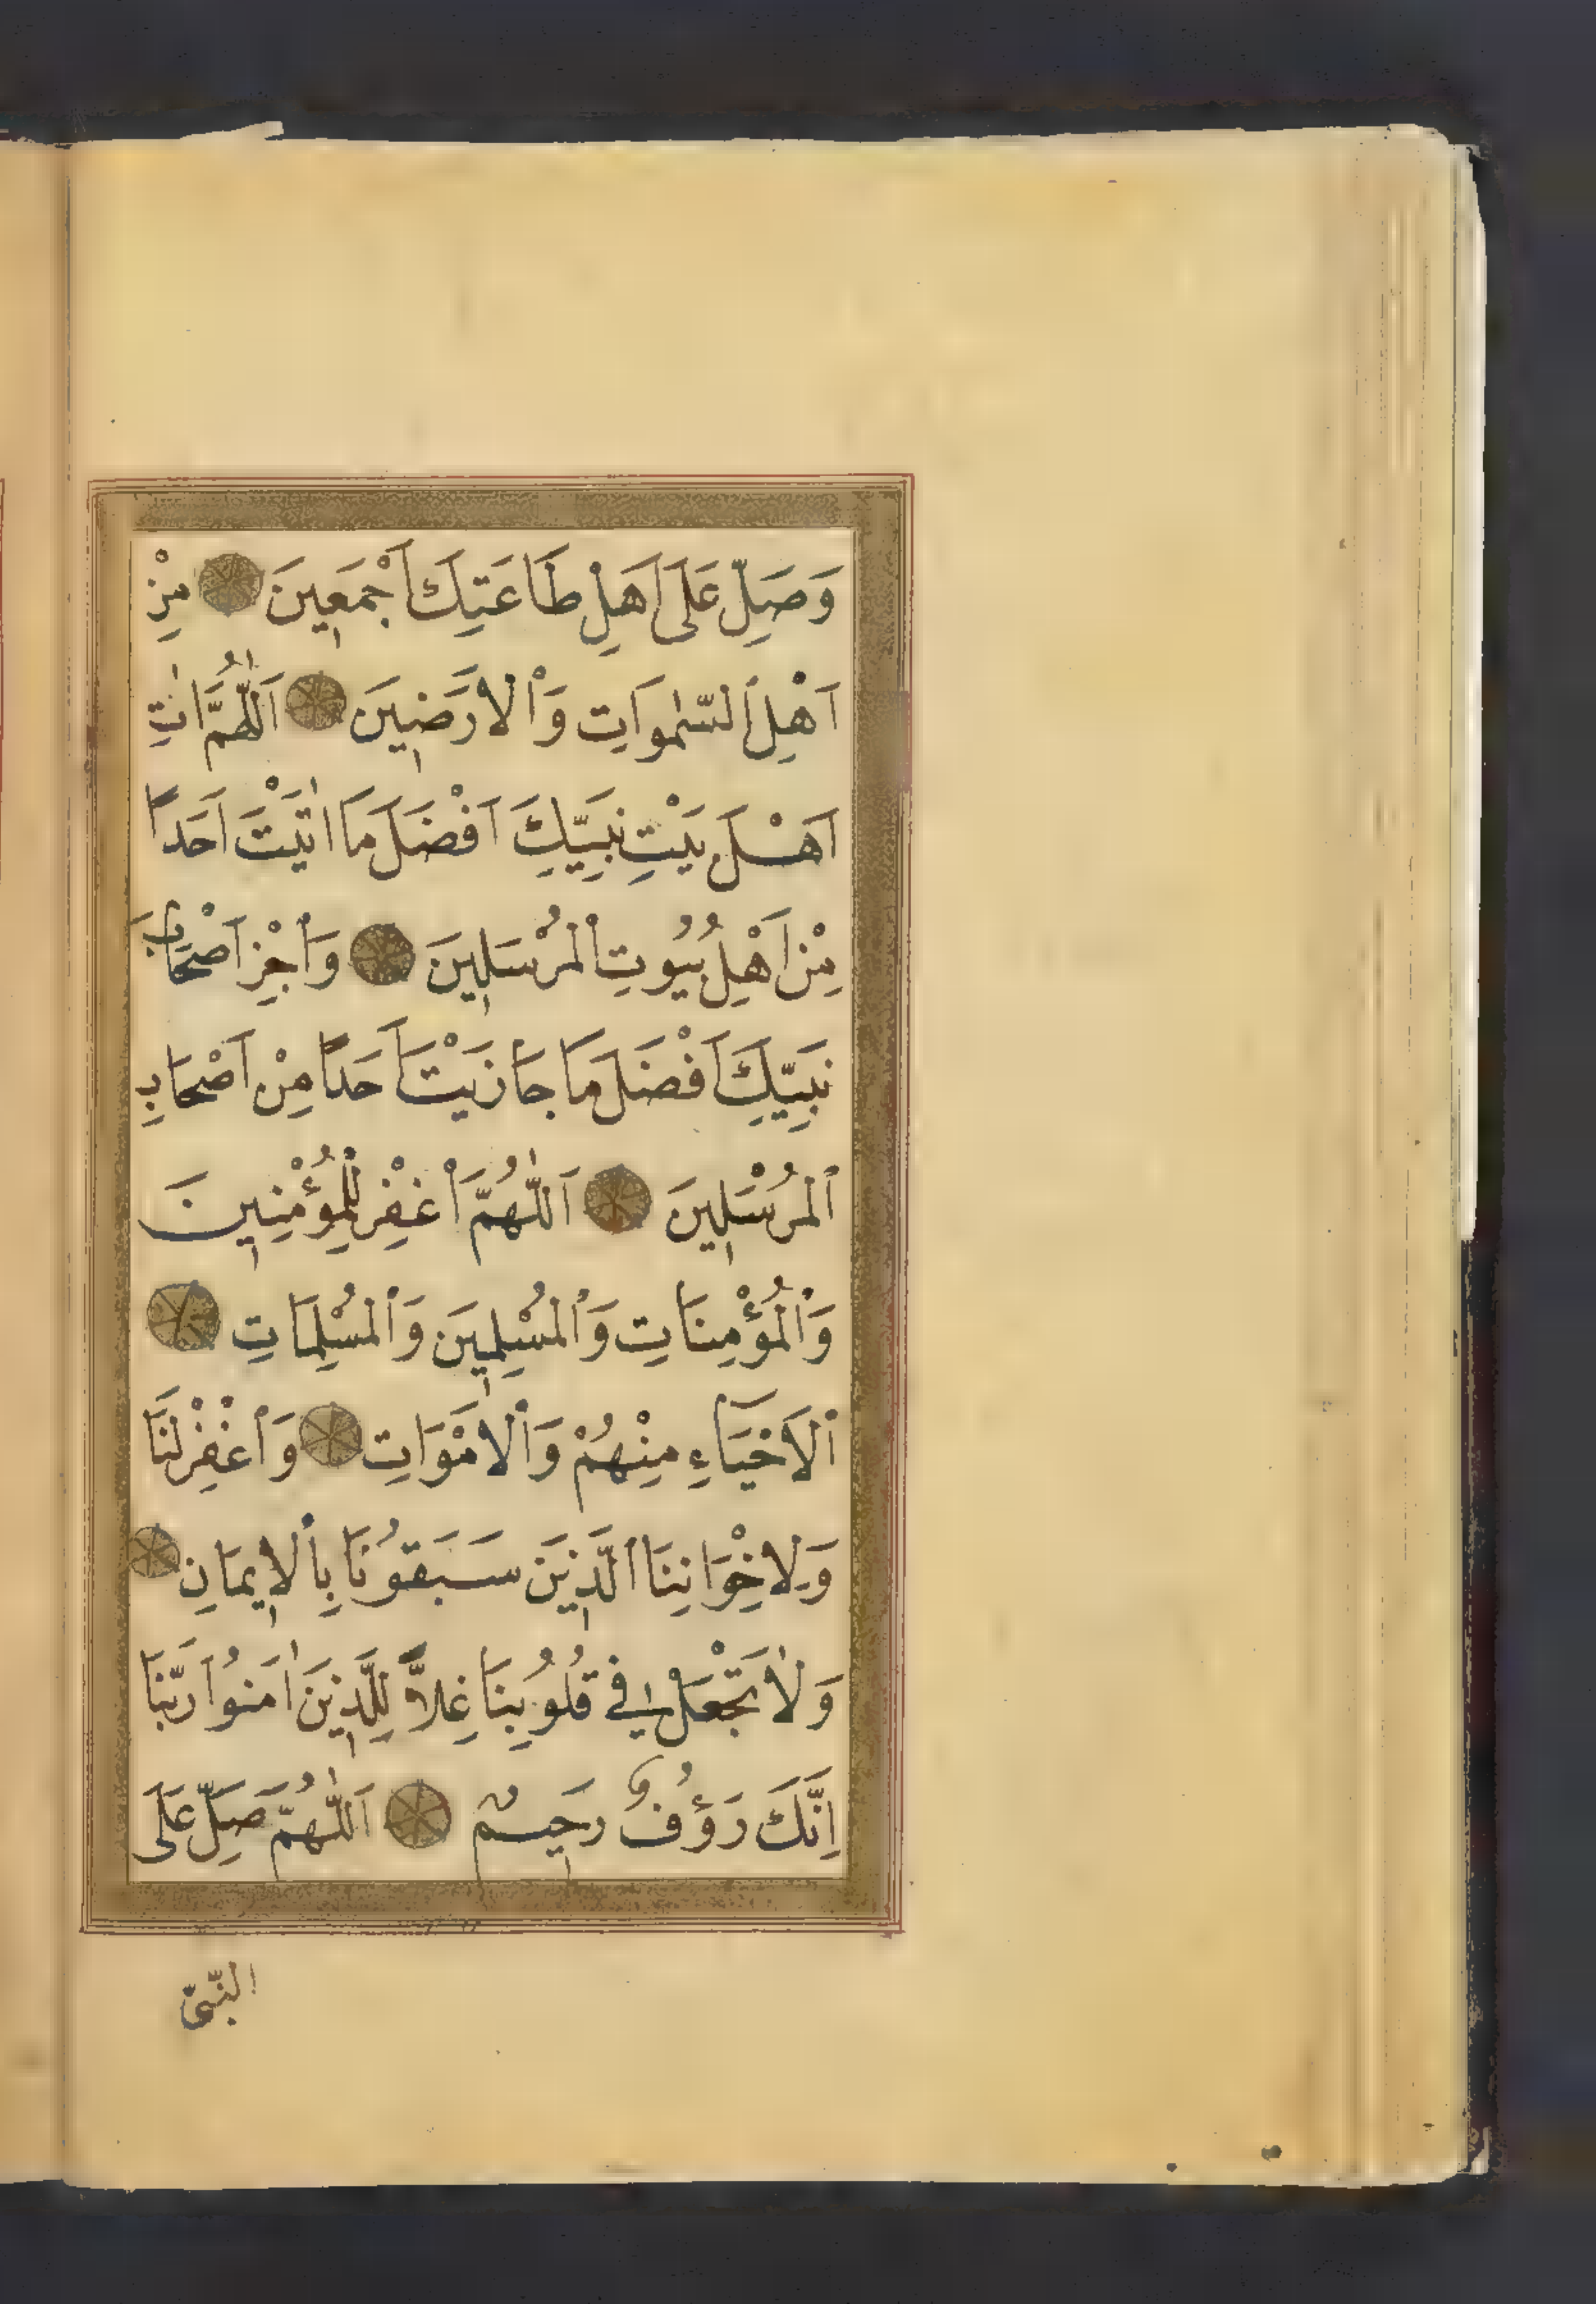 وَصَلِّ عَلَى اَهْلِ طَاعَتِكَ اَجْمَعِينَ مِنْ
اَهْلِ السَّمٰوَاتِ وَالْاَرَضِينَ اَللّٰهُمَّ اٰتِ
اَهْلَ بَيْتِ نَبِيِّكَ اَفْضَلَ مَا اٰتَيْتَ اَحَداً
مِنْ اَهْلِ بُيُوتِ الْمُرْسَلِينَ وَاَجْزِ اَصْحَابَ
نَبِيِّكَ اَفْضَلَ مَا جَازَيْتَ اَحَداً مِنْ اَصْحَابِ
الْمُرْسَلِينَ اَللّٰهُمَّ اغْفِرْ لِلْمُؤْمِنِينَ
وَالْمُؤْمِنَاتِ وَالْمُسْلِمِينَ وَالْمُسْلِمَاتِ
اَلْاَحْيَاءِ مِنْهُمْ وَالْاَمْوَاتِ وَاغْفِرْ لَنَا
وَلِاِخْوَانِنَا الَّذِينَ سَبَقُونَا بِالْاِيمَانِ
وَلَا تَجْعَلْ فِي قُلُوبِنَا غِلًّا لِلَّذِينَ اٰمَنُوا رَبَّنَا
اِنَّكَ رَؤُفٌ رَحِيمٌ اَللّٰهُمَّ صَلِّ عَلَى
النَّبِيِّ